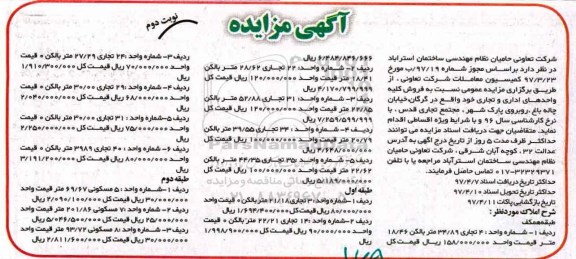 آگهی مزایده
نوبت دوم
شرکت تعاونی حامیان نظام مهندسی ساختمان استرآباد
در نظر دارد براساس مجوز شماره ۹۷/۱۹/ب مورخ
۹۷/۳/۲۳ کمیسیون معاملات شرکت تعاونی ، از
طریق برگزاری مزایده عمومی نسبت به فروش کلیه
واحدهای اداری و تجاری خود واقع در گرگان خیابان
چاله باغ روبروی پارک شهر ، مجتمع تجاری قدس ، با
نرخ کارشناسی سال ۹۶ و با شرایط ویژه اقساطی اقدام
نماید. متقاضیان جهت دریافت اسناد مزایده می توانند
حداکثر ظرف مدت ۵ روز از تاریخ درج آگهی به آدرس
عدالت ۳۲ ، کوچه آبان شرقی ، شرکت تعاونی حامیان
نظام مهندسی ساختمان استرآباد مراجعه یا با تلفن
۰۱۷-۳۲۳۲۹۳۷۱ تماس حاصل فرمایند.
حداکثر تاریخ دریافت اسناد ۹۷/۴/۷
حداکثر تاریخ تحویل اسناد ۹۷/۴/۱۰
تاریخ بازگشایی پاکات ۹۷/۴/۱۱
شرح املاک موردنظر :
طبقه همکف
ردیف ۱ – شماره واحد : ۴ تجاری ۳۴/۸۹ متر بالکن ۱۶/۸۹
متر قیمت واحد ۱۵۸/۰۰۰/۰۰۰ ریال قیمت کل
۶/۴۸۴/۸۴۶/۶۶۶ ریال
ردیف ۲– شماره واحد: ۲۲ تجاری ۲۸/۶۲ متر بالکن
۱۸/۴۱ متر قیمت واحد ۱۲۰/۰۰۰/۰۰۰ ریال قیمت کل
۴/۱۷۰/۷۹۹/۹۹۹ ریال
ردیف ۳– شماره واحد: ۳۱ تجاری ۵۲/۸۸ متر بالکن
۲۲/۸۵ متر قیمت واحد ۱۲۰/۰۰۰/۰۰۰ ریال قیمت کل
۷/۲۵۹/۵۹۹/۹۹۹ ریال
ردیف ۴– شماره واحد : ۳۴ تجاری ۳۹/۵۵ متر بالکن
۲۰/۷۷ متر قیمت واحد ۱۰۰/۰۰۰/۰۰۰ ریال قیمت کل
ردیف ۵– شماره واحد: ۳۵ تجاری ۴۴/۳۵ متر بالکن
۲۲/۶۲ متر قیمت واحد ۱۰۰/۰۰۰/۰۰۰ ریال قیمت کل
۵/۱۸۹/۰۰۰/۰۰۰ ریال
طبقه اول
ردیف ۱– شماره واحد: ۳ تجاری ۲۱/۱۸ متر قیمت واحد
۸۰/۰۰۰/۰۰۰ ریال قیمت کل ۱/۶۹۴/۴۰۰/۰۰۰ ریال
ردیف ۲ – شماره واحد: ۱۴ تجاری ۲۲/۲۱ متر بالکن + قیمت
واحد ۹۰/۰۰۰/۰۰۰ ریال قیمت کل ۱/۹۹۸/۹۰۰/۰۰۰
ردیف ۳– شماره واحد: ۲۴ تجاری ۲۷/۲۹ متر بالکن + قیمت
واحد ۷۰/۰۰۰/۰۰۰ ریال قیمت کل ۱/۹۱۰/۳۰۰/۰۰۰
ردیف ۴– شماره واحد: ۲۹ تجاری ۳۰/۰۰ متر بالکن + قیمت
واحد ۶۸/۰۰۰/۰۰۰ ریال قیمت کل ۲/۰۴۰/۰۰۰/۰۰۰
ردیف ۵– شماره واحد: ۳۱ تجاری ۳۰/۰۰ متر بالکن + قیمت
واحد ۷۵/۰۰۰/۰۰۰ ریال قیمت کل ۲/۲۵۰/۰۰۰/۰۰۰
ردیف ۶– شماره واحد: ۴۰ تجاری ۳۹۸۹ متر بالکن + قیمت
واحد ۸۰/۰۰۰/۰۰۰ ریال قیمت کل ۳/۱۹۱/۲۰۰/۰۰۰
طبقه دوم
ردیف ۱ –شماره واحد: ۵ مسکونی ۶۹/۶۷ متر قیمت واحد
۳۰/۰۰۰/۰۰۰ ریال قیمت کل ۲/۰۹۰/۱۰۰/۰۰۰ ریال
ردیف ۲– شماره واحد: ۷ مسکونی ۲۰۱/۸۶ متر قیمت واحد
۲۵/۰۰۰/۰۰۰ ریال قیمت کل ۵/۰۴۶/۵۰۰/۰۰۰ ریال
ردیف ۳– شماره واحد: ۸ مسکونی ۹۳/۷۲ متر قیمت واحد
۳۰/۰۰۰/۰۰۰ ریال قیمت کل ۲/۸۱۱/۶۰۰/۰۰۰ ریال